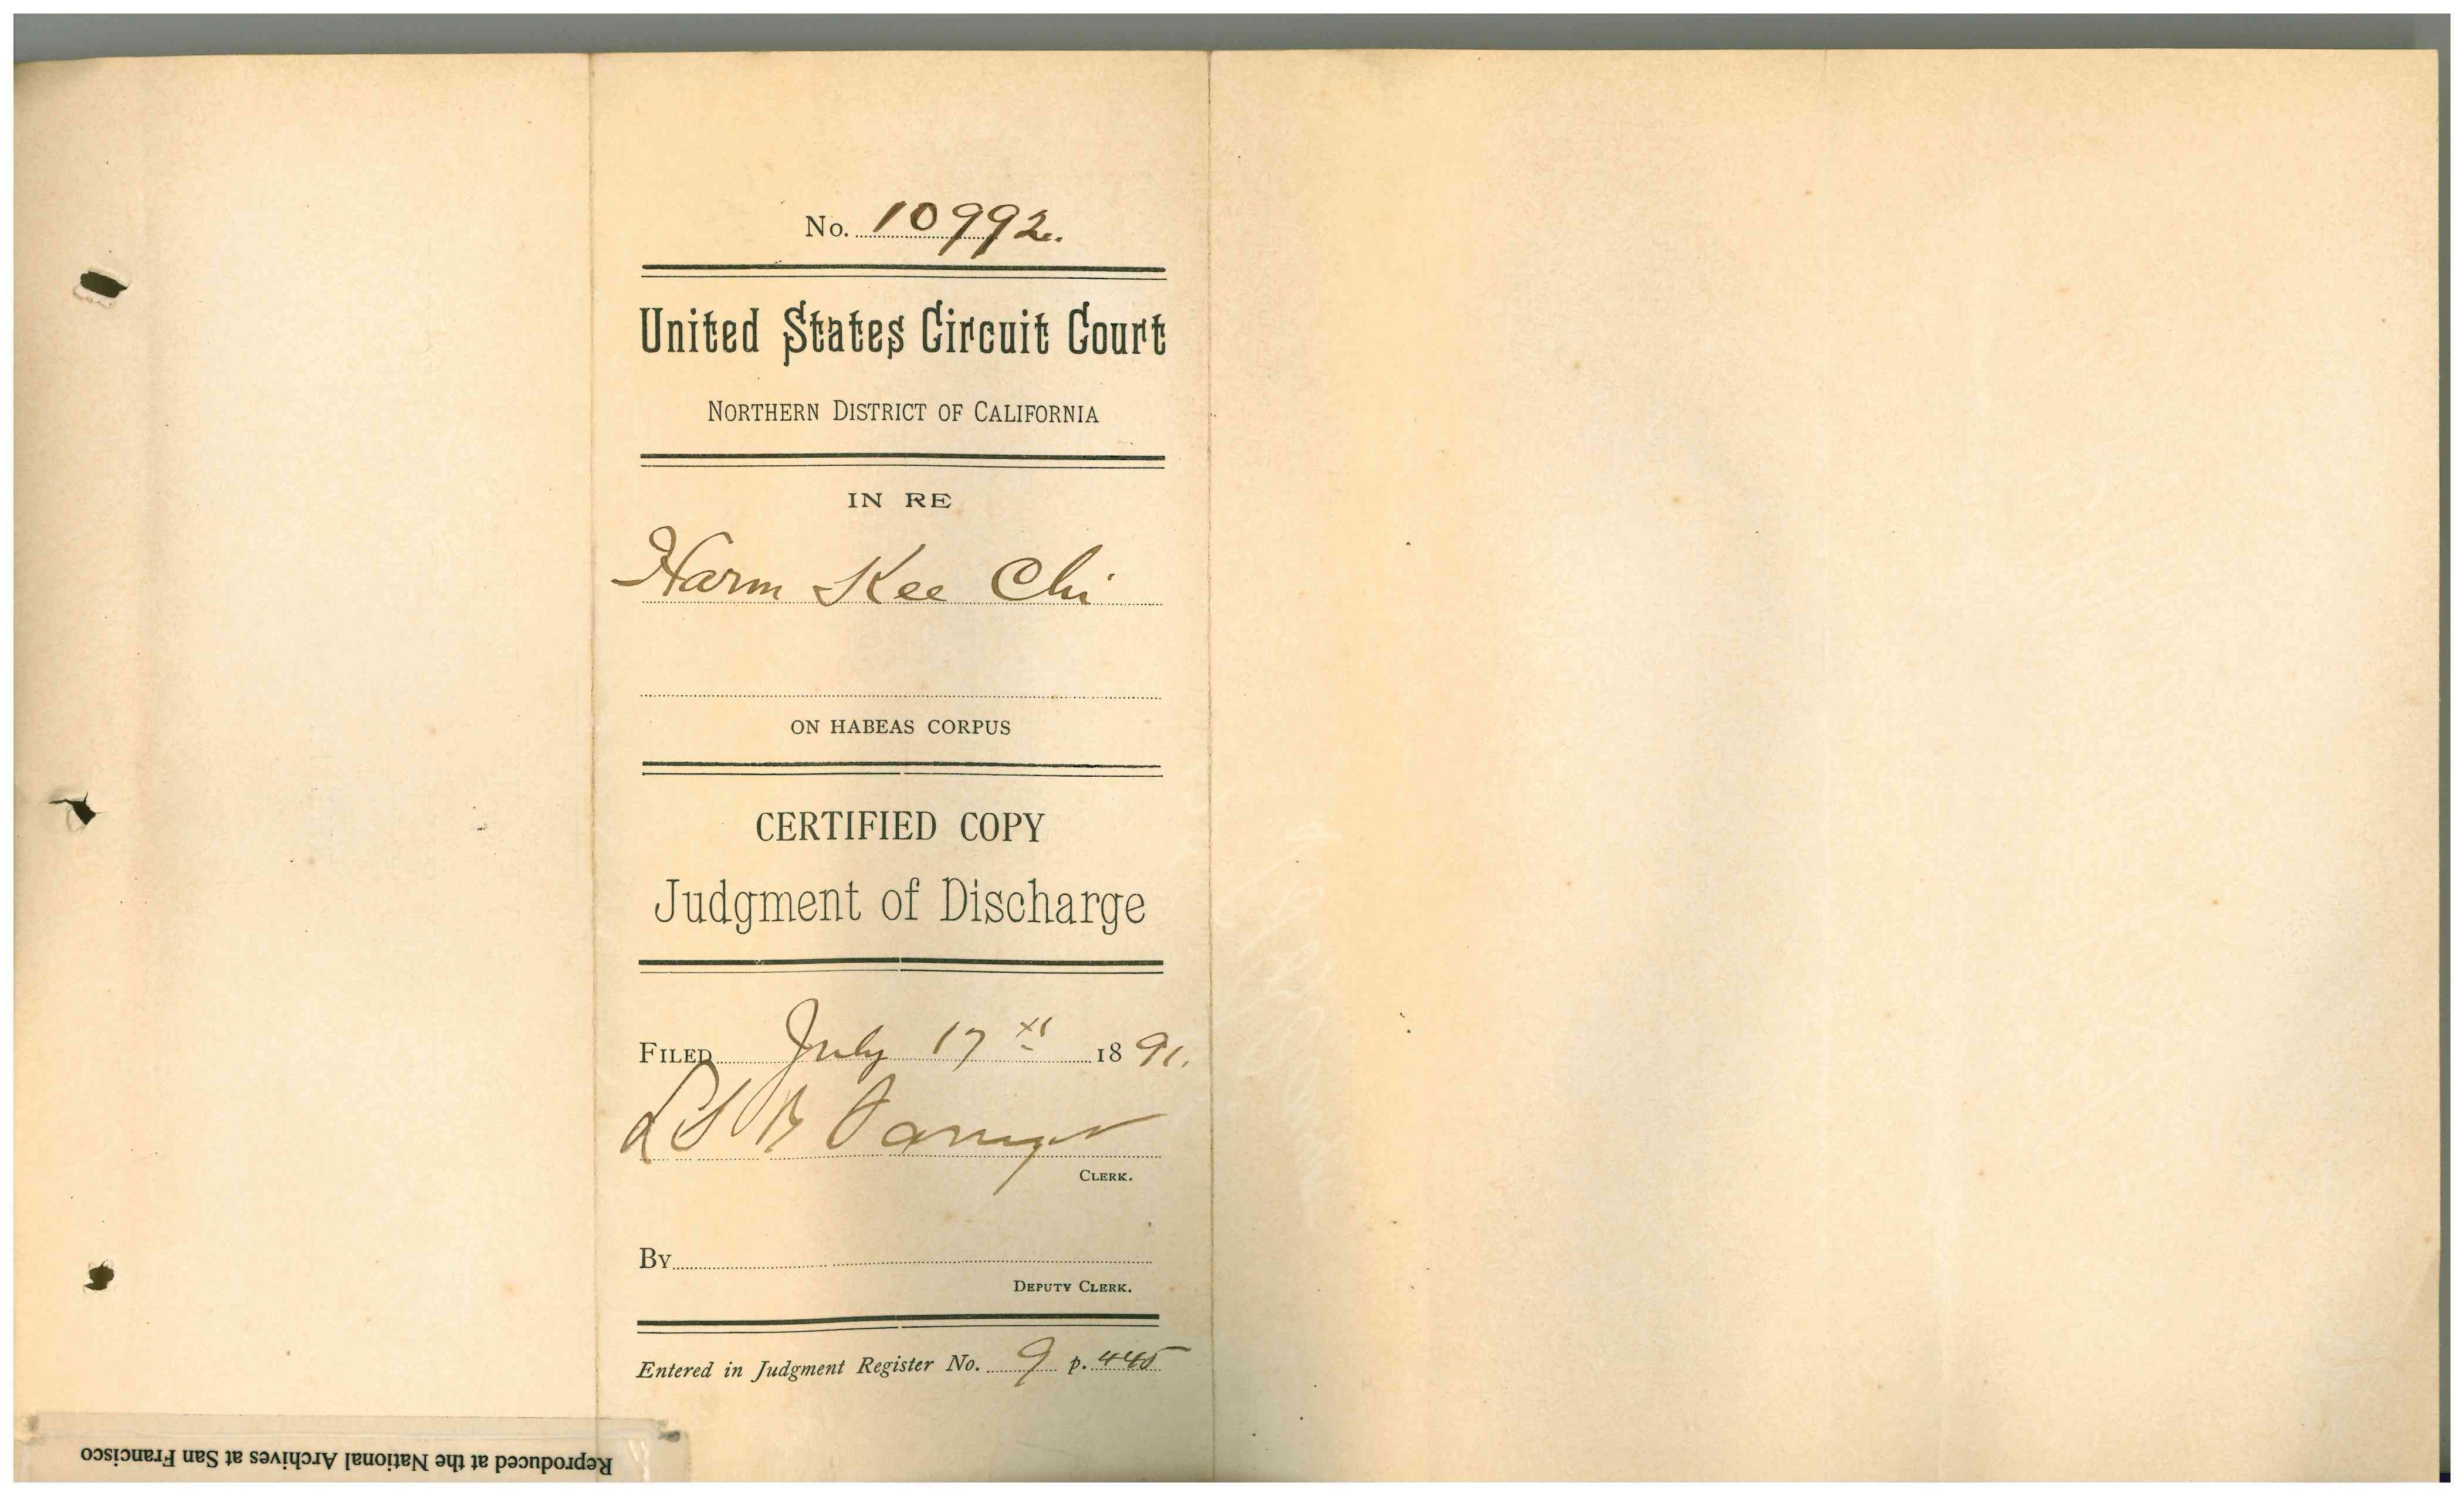 No. 10992.
United States Circuit Court
NORTHERN DISTRICT OF CALIFORNIA
IN RE
Harm Kee Chi
ON HABEAS CORPUS
CERTIFIED COPY
Judgment of Discharge
FILED July 17th 1891.
L S B Sawyer
CLERK.
By
DEPUTY CLERK.
Entered in Judgment Register No. 9 p. 445
Reproduced at the National Archives at San Francisco